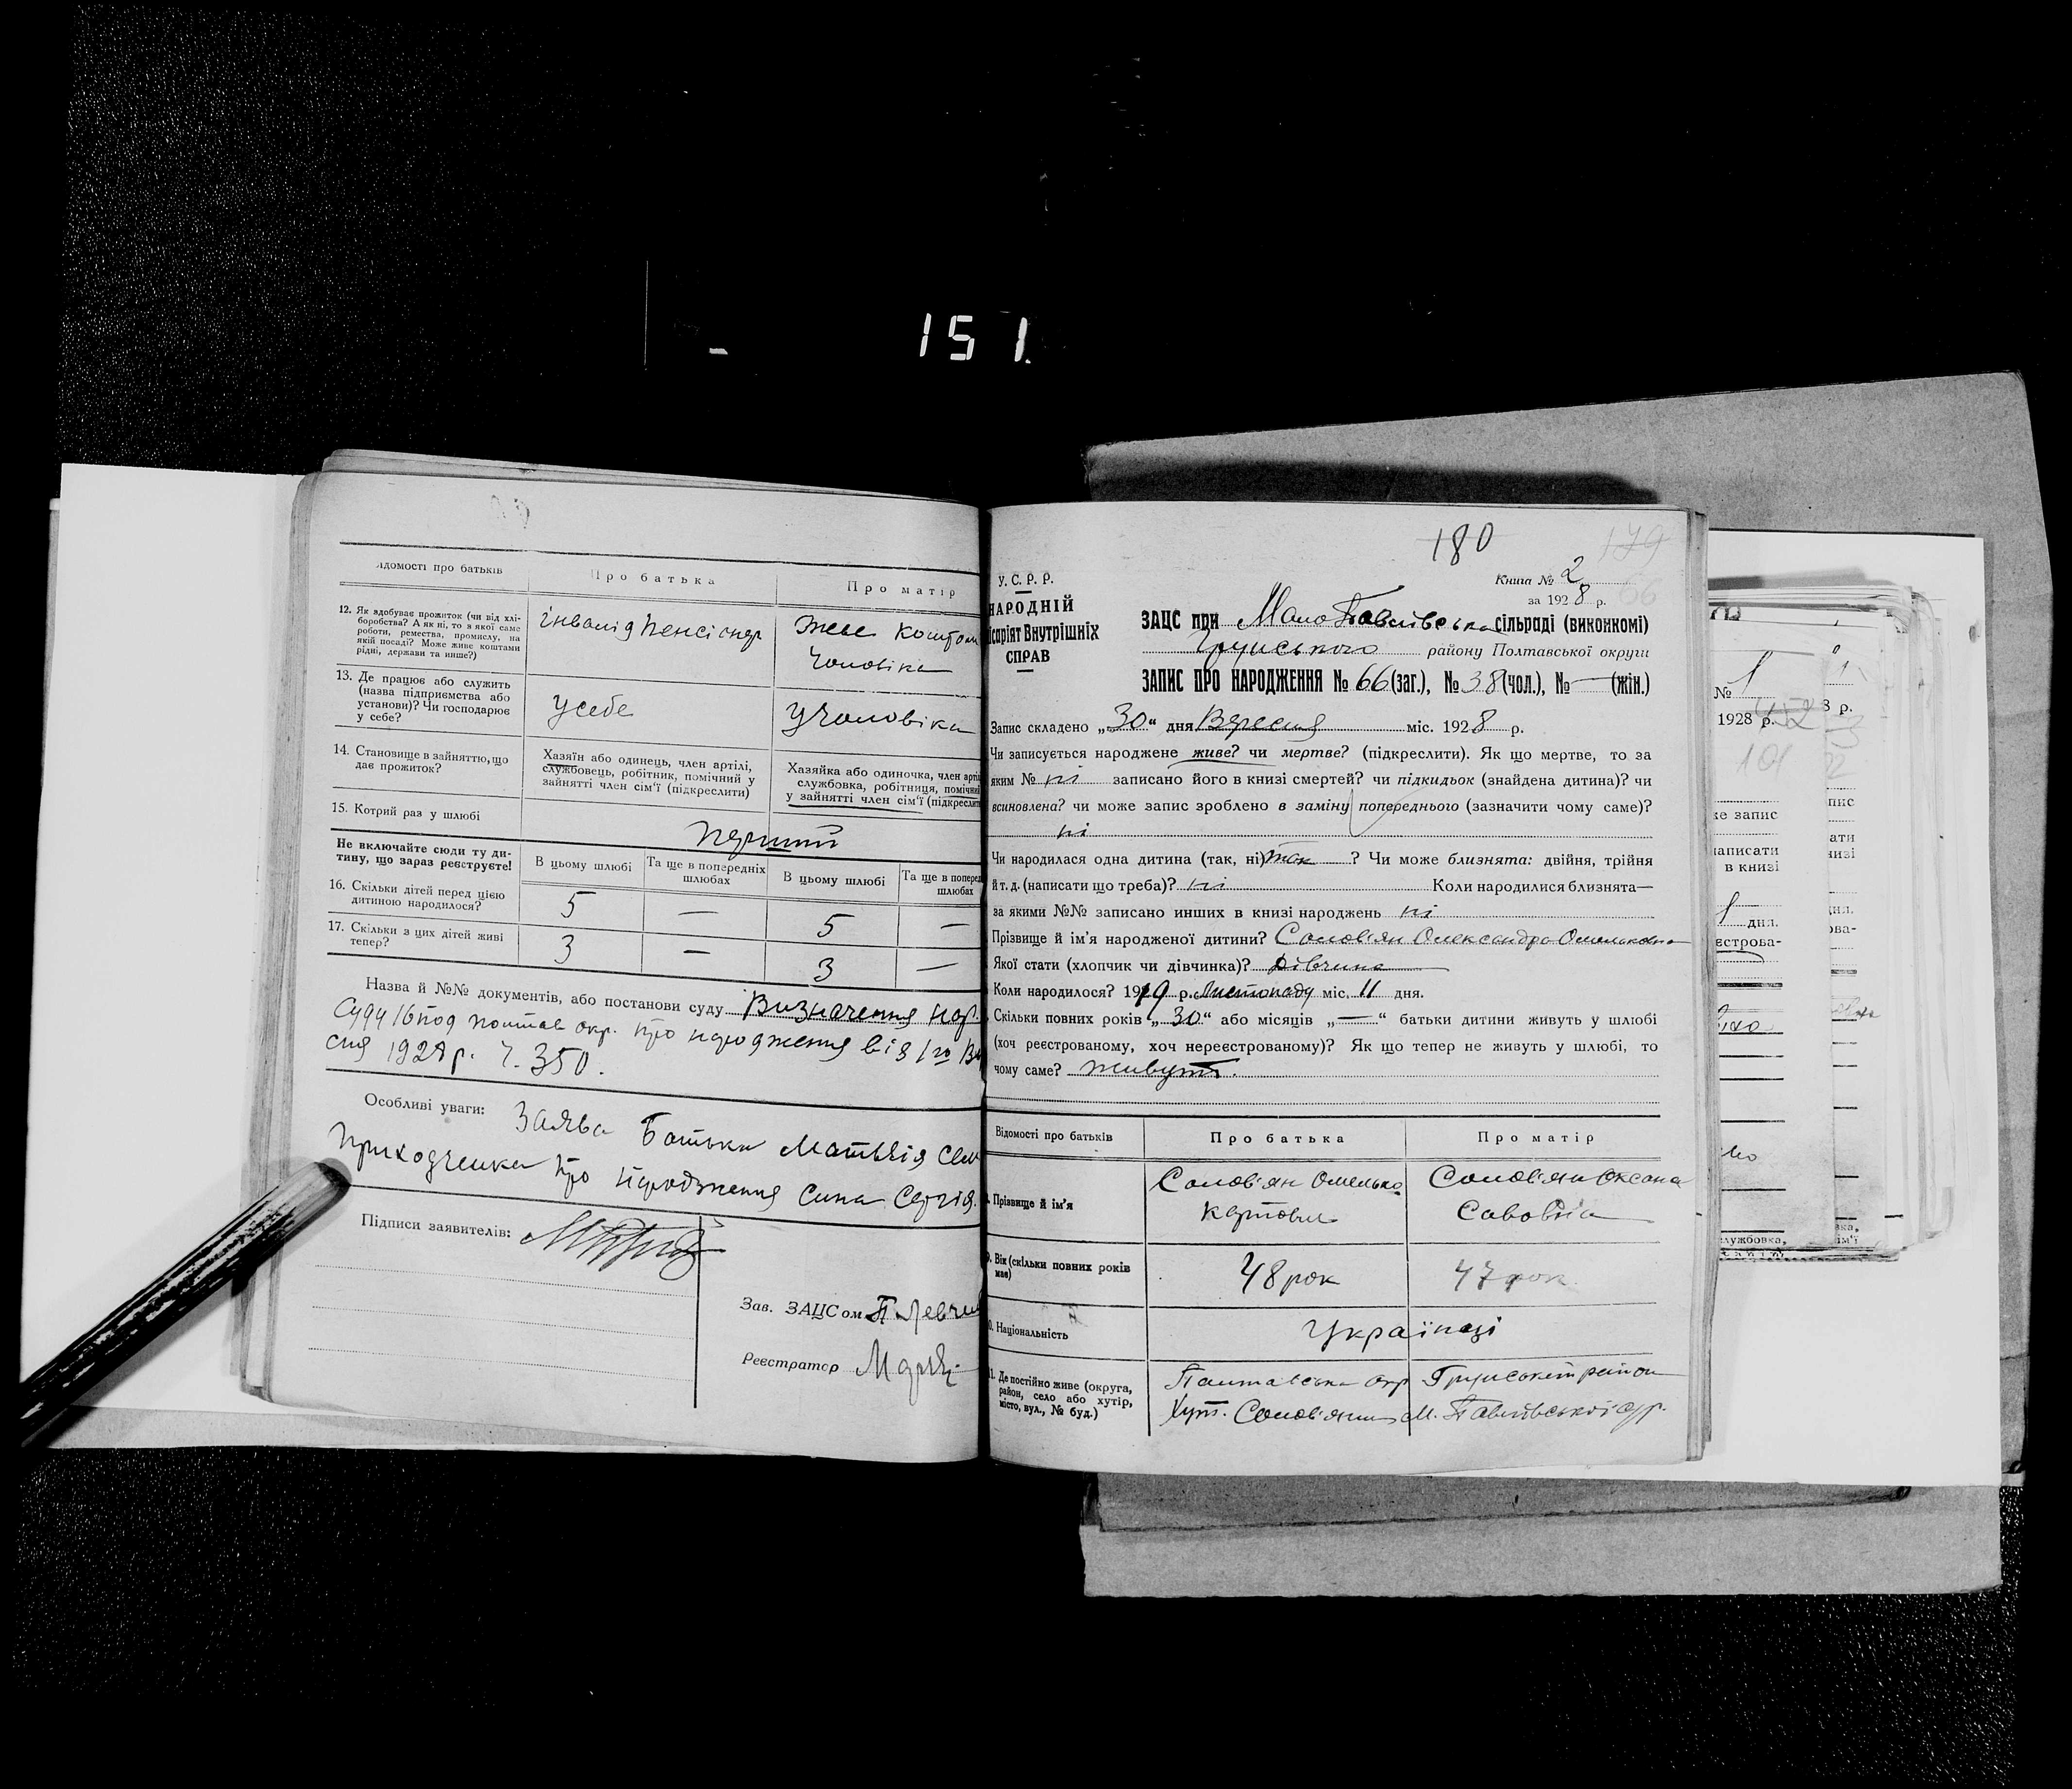 151.
відомості про батьків
Про батька
Про матір
12. Як здобуває прожиток (чи від хлі-
боробства? А як ні, то з якої саме
роботи, ремества, промислу, на
якій посаді? Може живе коштами
рідні, держави та инше?)
інвалід пенсіонер
Живе коштом
чоловіка
13. Де працює або служить
(назва підприємства або
установи)? Чи господарює
у себе?
У себе
У чоловіка
14. Становище в зайняттю, що
дає прожиток?
Хазяїн або одинець, член артілі,
службовець, робітник, помічний у
зайнятті член сім'ї (підкреслити)
Хазяйка або одиночка, член арті
службовка, робітниця, помічни
у зайнятті член сім'ї (підкресли
15. Котрий раз у шлюбі
Не включайте сюди ту ди-
тину, що зараз реєструєте!
В цьому шлюбі
Та ще в попередніх
шлюбах
В цьому шлюбі
Та ще в попере
шлюбах
16. Скільки дітей перед цією
дитиною народилося?
5 — 5 —
17. Скільки з цих дітей живі
тепер?
3 — 3 —
Назва й №№ документів, або постанови суду Визначення нар.
Суду 16 под полтав окр. про народження від 1го
сня 1928 р. Ч. 350.
Особливі уваги: Заява Батька Матвія
Приходченка про народження сина Сергія.
Підписи заявителів:
Зав. ЗАЦСом П. Левч
Реєстратор
180
179
У. С. Р. Р.
НАРОДНІЙ
ісаріят Внутрішніх
СПРАВ
Книга № 2
за 1928 р.
66
ЗАЦС при Мало Павлівська сільраді (виконкомі)
Грунського району Полтавської округи
ЗАПИС ПРО НАРОДЖЕННЯ № 66 (заг.), № 38 (чол.), № — (жін.)
Запис складено „30“ дня Вересня міс. 1928 р.
Чи записується народжене живе? чи мертве? (підкреслити). Як що мертве, то за
яким № ні записано його в книзі смертей? чи підкидьок (знайдена дитина)? чи
всиновлена? чи може запис зроблено в заміну попереднього (зазначити чому саме)?
ні
Чи народилася одна дитина (так, ні) так ? Чи може близнята: двійня, трійня
й т. д. (написати що треба)? ні Коли народилися близнята—
за якими №№ записано инших в книзі народжень ні
Прізвище й ім'я народженої дитини? Солов'ян Олександра Омельковна
Якої стати (хлопчик чи дівчинка)? дівчина
Коли народилося? 1919 р. Листопаду міс. 11 дня.
Скільки повних років „30“ або місяців „—“ батьки дитини живуть у шлюбі
(хоч реєстрованому, хоч нереєстрованому)? Як що тепер не живуть у шлюбі, то
чому саме? живуть.
Відомості про батьків
Про батька
Про матір
Прізвище й ім'я
Солов'ян Омелько
Солов'ян Оксана
Савовна
Вік (скільки повних років
має)
48 рок
47 рок
Національність
Українці
Де постійно живе (округа,
район, село або хутір,
місто, вул., № буд.)
Полтавська окр Грунський район
Хут. Солов'яни М. Павлівської с/р.
№ 1
1928 р.
3 р.
же запис
написати
в книзі
дня.
єстрова-
службовка,